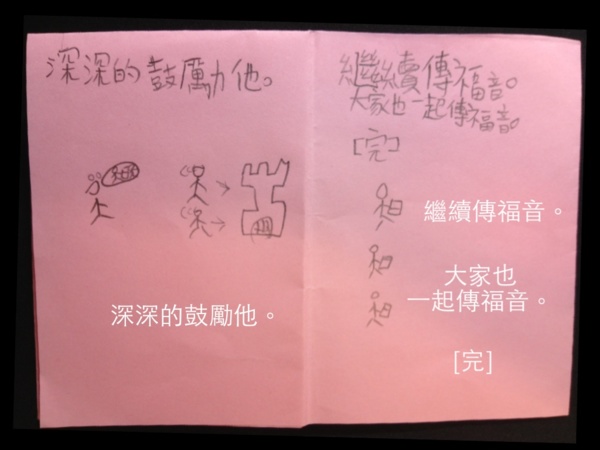 深深的鼓勵他。
深深的鼓勵他。
繼續傳福音。
大家也一起傳福音。
[完]
繼續傳福音。
大家也
一起傳福音。
[完]